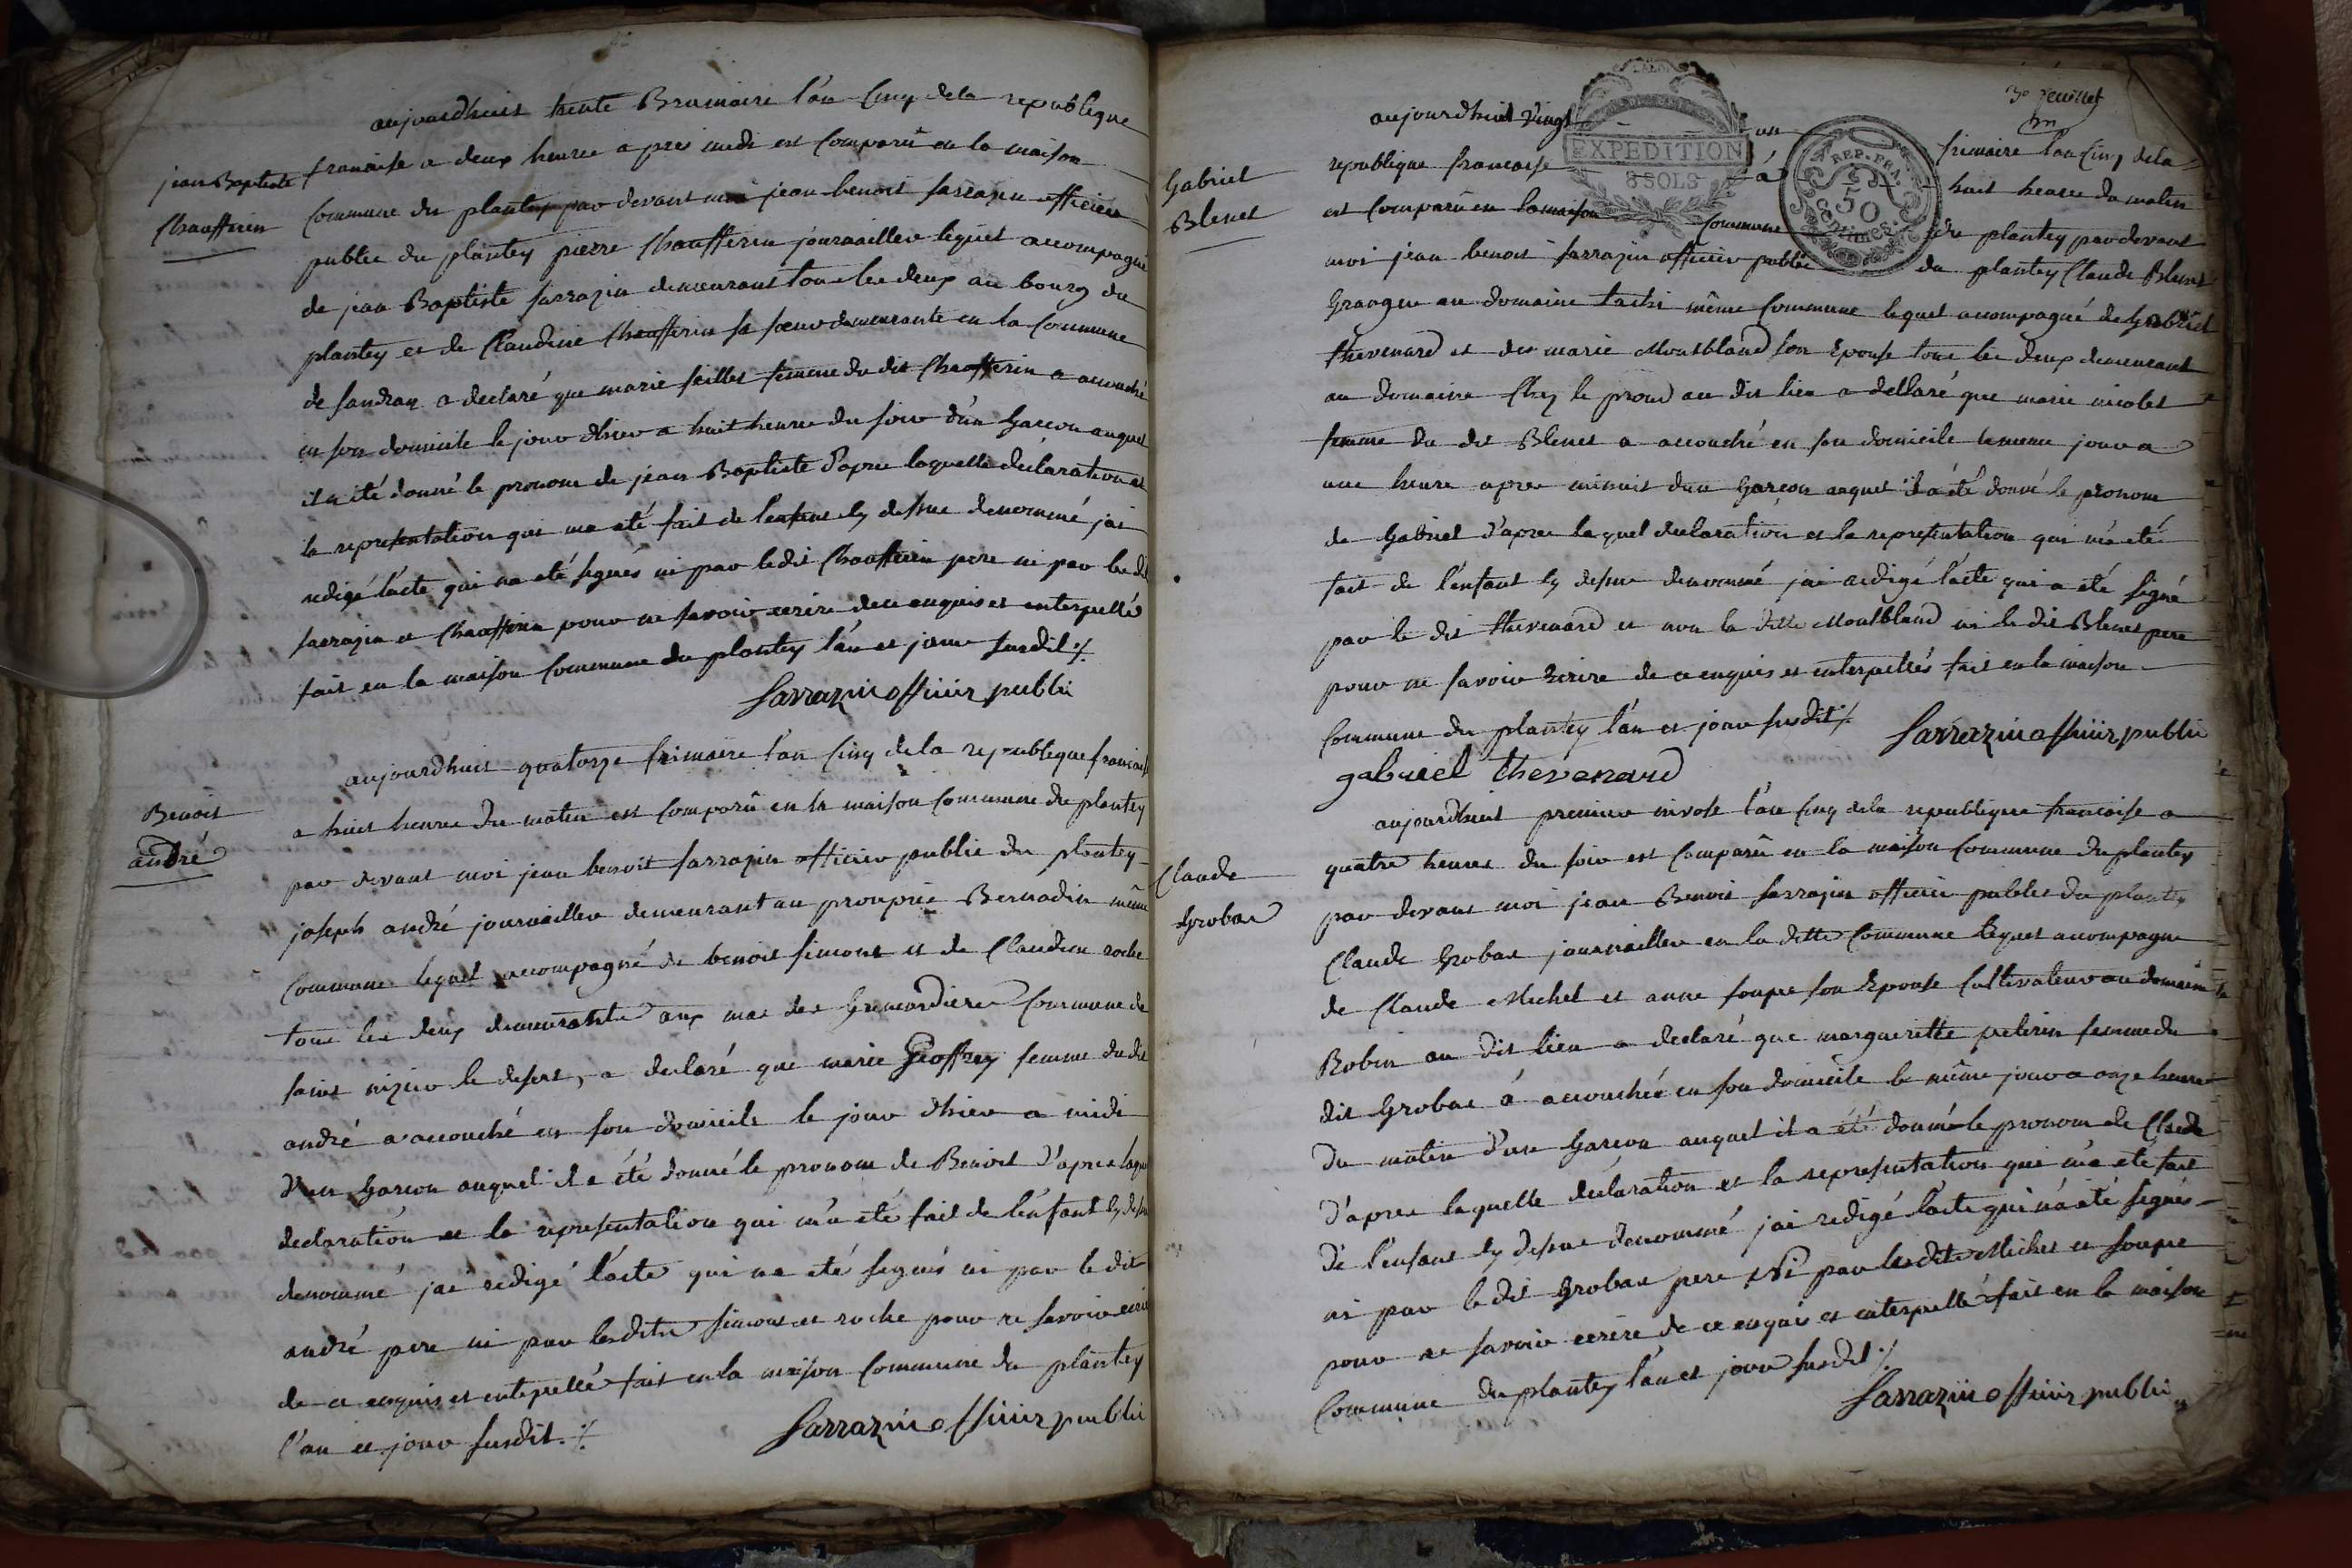 aujourdhuit trente Brumaire l'an Cinq dela republique
jean Baptiste
Chaufferin
francaise a deux heures apres midi est Comparû en la maison
Commune du plantey par devant moi jean benoit sarrazin officier
public du plantey pierre Chaufferin journailler lequel accompagné
de jean Baptiste sarrazin demeurant tous les deux au bourg du
plantey et de Claudine Chaufferin sa soeur demeurante en la Commune
de sandran a declaré que marie femme du dit Chaufferin a accouché
en son domicile le jour dhier a huit heures du soir d'un Garcon auquel
il a été donné le pronom de jean Baptiste d'apres laquelle déclaration et
la representation qui ma été fait de lenfant Cy dessue denommé jai
redigé lacte qui na eté signés ni par ledit Chaufferin pere ni par les dit
sarrazin et Chaufferin pour ne savoir ecrire de ce enquis et enterpellé
fait en la maison Commune du plantey l'an et jour susdit ./.
Sarrazin officier public
aujourdhuit quatorze frimaire l'an Cinq de la republique francaise
Benoit
andré
a huit heures du matin est Comparû en la maison Commune du plantey
par devant moi jean benoit sarrazin officier public du plantey
joseph andré journailler demeurant au Bernadin même
Commune lequel accompagné de benoit simont et de Claudine roche
tous les deux demeurants aux mas des Commune de
saint nizier le desert, a declaré que marie Geoffray femme du dit
andré a accouché en son domicile le jour dhier a midi
d'un Garcon auquel il a été donné le pronom de Benoit d'apres laque
declaration et la representation qui m'a eté fait de l'enfant Cy dessu
denommé jai redigé lacte qui na eté signés ni par le dit
andré pere ni par lesdits simont et roche pour ne savoir ecrire
de ce enquis et enterpellé fait en la maison Commune du plantey
l'an et jour susdit ./.
Sarrazin officier public
3e feuillet
EXPEDITION
8 SOLS
REP. FRA.
50
Centimes
aujourdhuit vingt un frimaire l'an Cinq dela
Gabriel
Blenet
republique francaise á huit heures du matin
est Comparû en la maison Commune du plantey par devant
moi jean benoit sarrazin officier public du plantey Claude Blenet
Granger au domaine même Commune lequel accompagné de Gabriel
thevenard et de marie Montbland son Epouse tous les deux demeurant
au domaine Chez le au dit lieu a déclaré que marie nicolet
femme du dit Blenet a accouché en son domicile le meme jour a
une heure apres minuit d'un Garcon auquel il a été donné le pronom
de Gabriel d'apres laquel declaration et la representation qui m'a eté
fait de l'enfant Cy dessue denommé jai redigé lacte qui a été signé
par le dit thevenard et non la ditte Montbland ni le dit Blenet pere
pour ne savoir Ecrire de ce enquis et enterpellés fait en la maison
Commune du plantey l'an et jour susdit ./.
Sarrazin officier public
gabriel thevenard
aujourdhuit premier nivose l'an Cinq dela republique francaise a
Claude
Grobas
quatre heures du soir est Comparû en la maison Commune du plantey
par devant moi jean Benoit sarrazin officier public du plantey
Claude Grobas journailler en la ditte Commune lequel accompagné
de Claude Michel et anne soupe son Epouse Cultivateur au domaine
Robin au dit lieu a declaré que marguerite pelerin femme du
dit Grobas á accouchée en son domicile le même jour a onze heures
du matin d'un Garcon auquel il a été donné le pronom de Claude
d'apres laquelle déclaration et la representation qui m'a eté fait
de l'enfant Cy dessue denommé jai redigé lacte qui n'a été signés
ni par le dit Grobas pere Ni par lesdits Michel et soupe
pour ne savoir ecrire de ce enquis et enterpellé fait en la maison
Commune du plantey l'an et jour susdit ./.
Sarrazin officier public